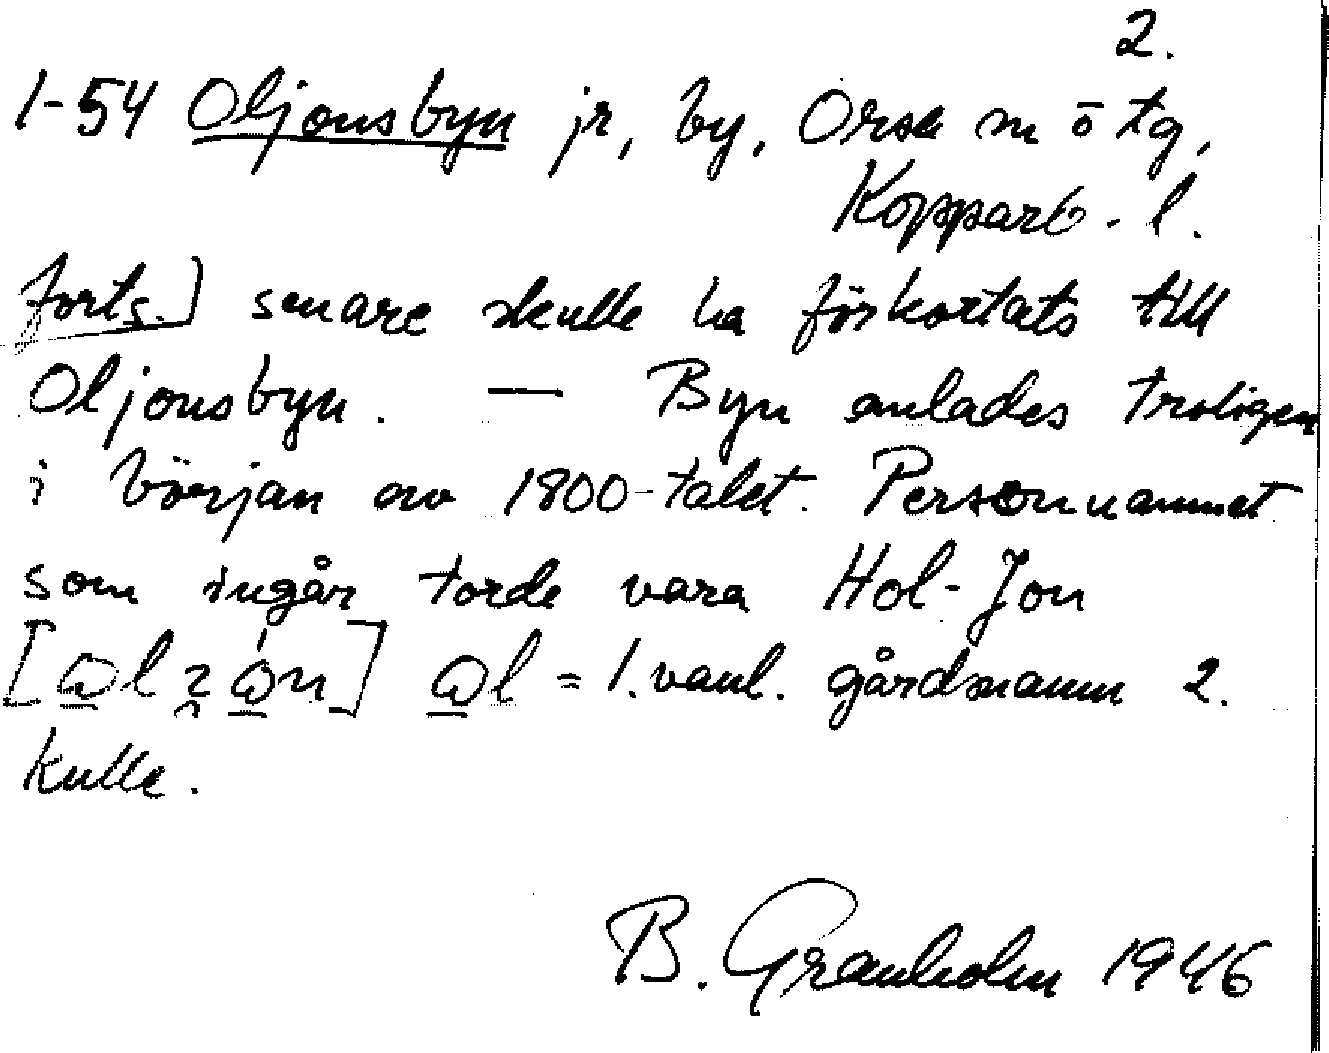 2.
1-54 Oljonsbyn jr, by, Orsa sn ö tg,
Kopparb. l.
forts.] senare skulle ha förkortats till
Oljonsbyn. — Byn anlades troligen
i början av 1800-talet. Personnamnet
som ingår torde vara Hol-Jon
= 1. vanl. gårdsnamn 2.
kulle.
B. Granholm 1946